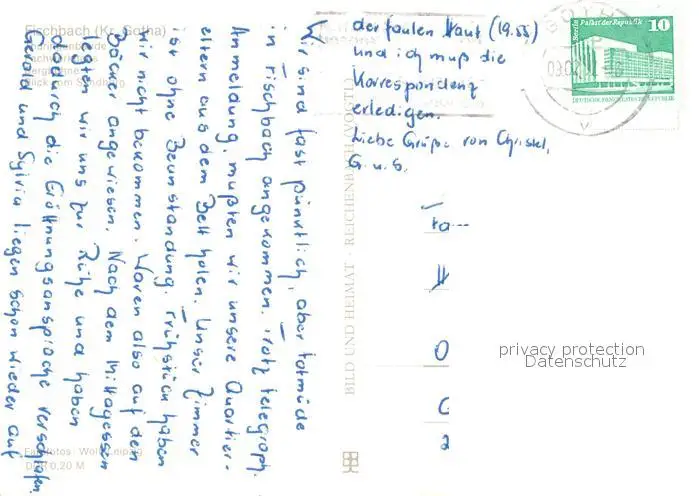 Fischbach (Kr. Gotha)
Wir sind fast pünktlich, aber totmüde
in Fischbach angekommen. Trotz telegraph.
Anmeldung, mußten wir unsere Quartier-
eltern aus dem Bett holen. Unser Zimmer
ist ohne Beanstandung. Frühstück haben
wir nicht bekommen. Waren also auf den
Bäcker angewiesen. Nach dem Mittagessen
legten wir uns zur Ruhe und haben
dadurch die Eröffnungsansprache verschlafen.
Gerald und Sylvia liegen schon wieder auf
der faulen Haut (19.55)
und ich muß die
Korrespondenz
erledigen.
Liebe Grüße von Christel,
G. u. S.
BILD UND HEIMAT · REICHENBACH (VOGTL)
Berlin Palast der Republik
10
DEUTSCHE DEMOKRATISCHE REPUBLIK
privacy protection
Datenschutz
0,20 M